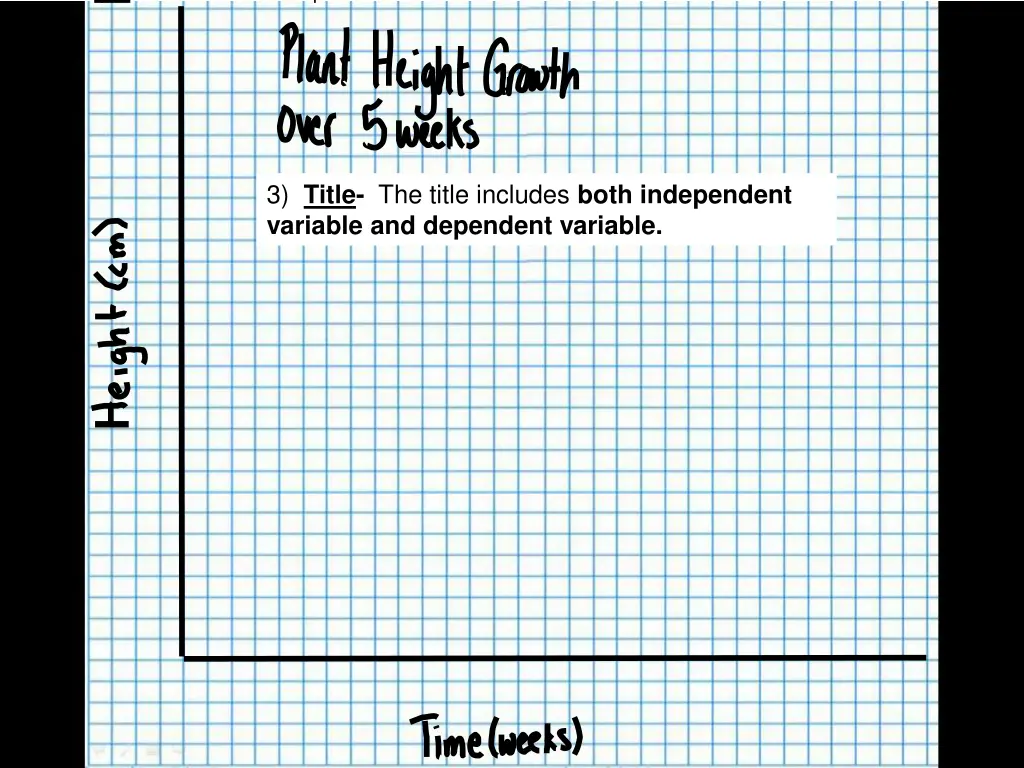 Plant Height Growth
over 5 weeks
3) Title- The title includes both independent
variable and dependent variable.
Height (cm)
Time (weeks)